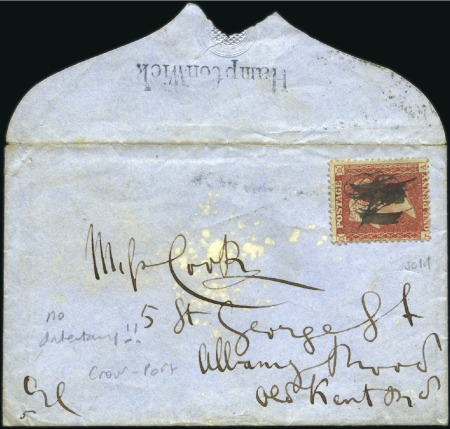 Hampton Wick
POSTAGE
Miss Cook
5 St George St
Albany Road
Old Kent Rd
no
datestamp!!